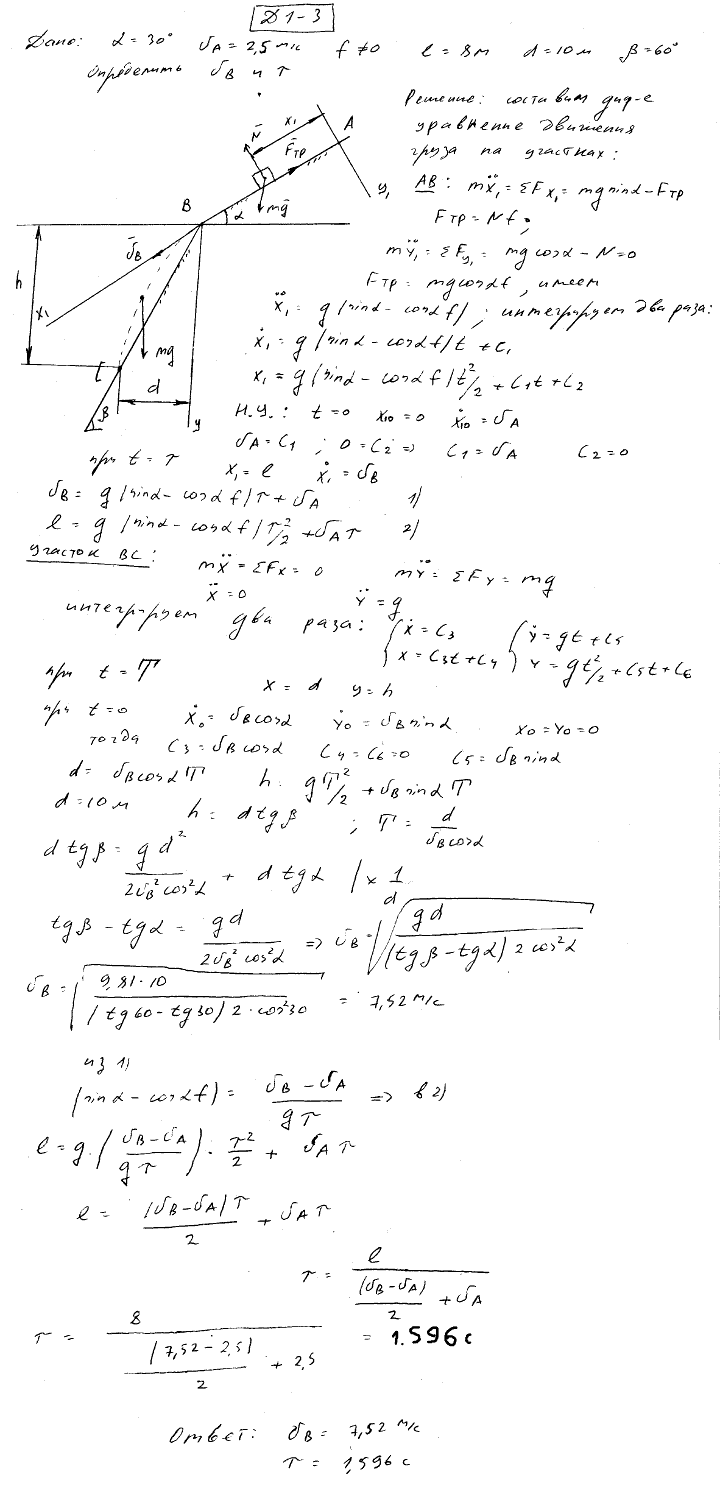 Д1-3
Дано: α = 30° υA = 2,5 м/с f ≠ 0 l = 8 м d = 10 м β = 60°
определить υB и τ
Решение: составим диф-е
уравнение движения
груза на участках:
N̄ x₁ A
F̄тр
y₁
B α mḡ
AB: mẍ₁ = ΣFx₁ = mg sinα - Fтр
Fтр = Nf;
mÿ₁ = ΣFy₁ = mg cosα - N = 0
Fтр = mg cosα f, имеем
ῡB
h
x₁
mg
C d
β y
ẍ₁ = g(sinα - cosα f); интегрируем два раза:
ẋ₁ = g(sinα - cosα f)t + C₁
x₁ = g(sinα - cosα f)t²/2 + C₁t + C₂
Н.У.: t = 0 x₁₀ = 0 ẋ₁₀ = υA
υA = C₁ ; 0 = C₂ => C₁ = υA C₂ = 0
при t = τ x₁ = l ẋ₁ = υB
υB = g(sinα - cosα f)τ + υA 1)
l = g(sinα - cosα f)τ²/2 + υA τ 2)
участок BC: mẍ = ΣFx = 0 mÿ = ΣFy = mg
ẍ = 0 ÿ = g
интегрируем два раза: { ẋ = C₃ { ẏ = gt + C₅
x = C₃t + C₄ y = gt²/2 + C₅t + C₆
при t = T x = d y = h
при t = 0 ẋ₀ = υB cosα ẏ₀ = υB sinα x₀ = y₀ = 0
тогда C₃ = υB cosα C₄ = C₆ = 0 C₅ = υB sinα
d = υB cosα T h = gT²/2 + υB sinα T
d = 10 м h = d tgβ ; T = d/(υB cosα)
d tgβ = gd²/(2υB² cos²α) + d tgα | × 1/d
tgβ - tgα = gd/(2υB² cos²α) => υB = √(gd/((tgβ - tgα) 2 cos²α))
υB = √(9,81·10/((tg60 - tg30) 2·cos²30)) = 7,52 м/с
из 1)
(sinα - cosα f) = (υB - υA)/(gτ) => в 2)
l = g·((υB - υA)/(gτ))·τ²/2 + υA τ
l = (υB - υA)τ/2 + υA τ
τ = l/((υB - υA)/2 + υA)
τ = 8/((7,52 - 2,5)/2 + 2,5) = 1.596 с
Ответ: υB = 7,52 м/с
τ = 1,596 с